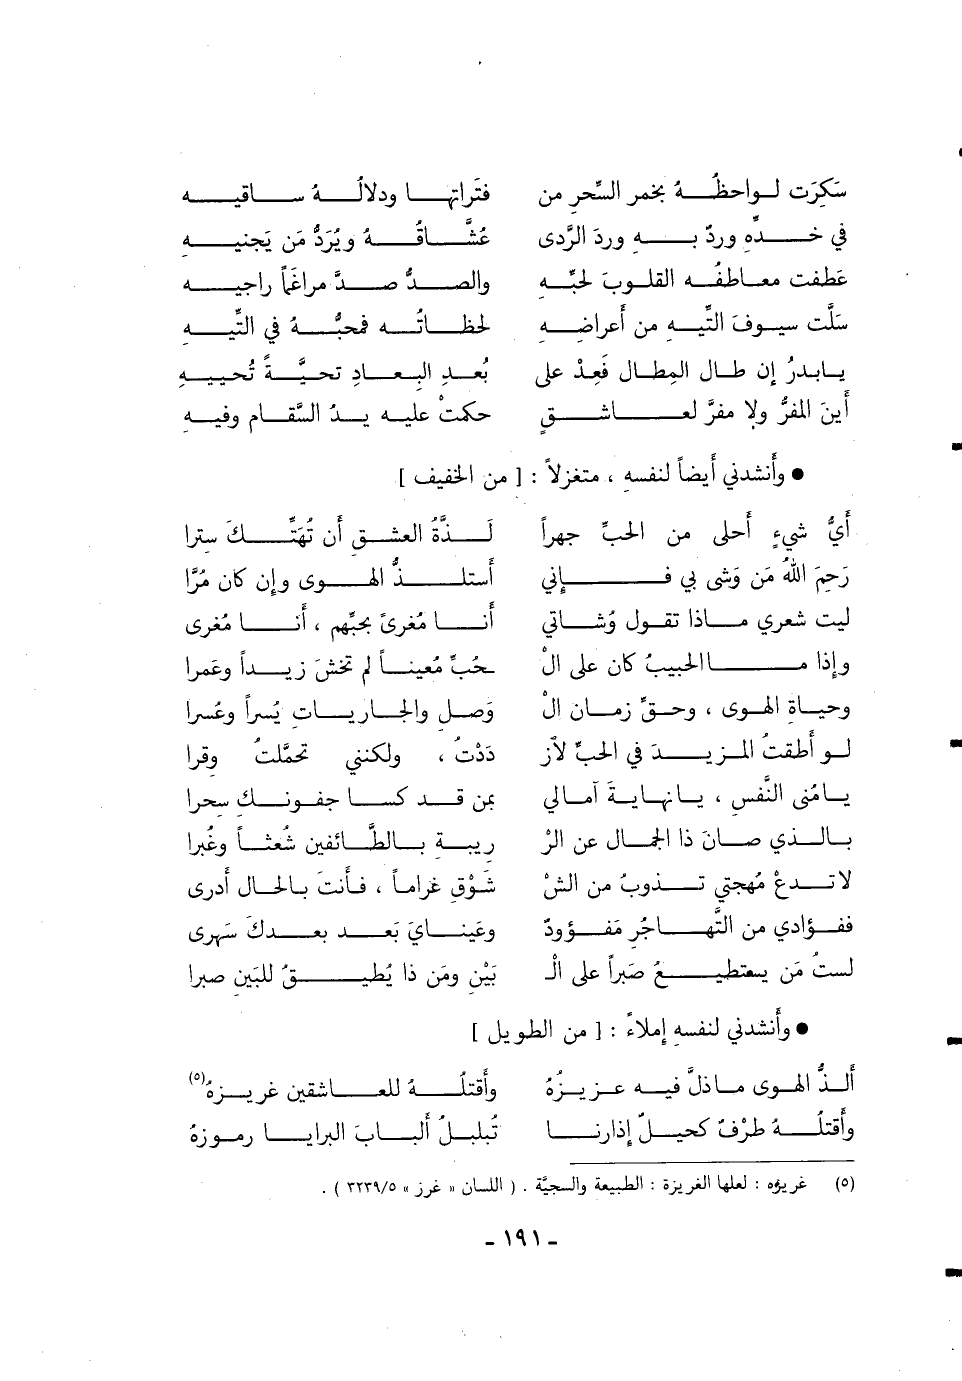 سَكِرَت لواحظُهُ بخمر السِّحر من فتَراتها ودلالُهُ ساقيه
في خدِّه وردٌ به وردَ الرَّدى عُشَّاقُهُ ويُرَدُّ مَن يَجنيه
عَطفت معاطفُه القلوبَ لحبِّه والصدُّ صدَّ مراغَماً راجيه
سَلَّت سيوفَ التِّيه من أعراضِه لحظاتُه فمحبُّهُ في التِّيه
يابدرُ إن طال المِطال فَعِدْ على بُعدِ البعادِ تحيَّةً تُحييه
أينَ المفرُّ ولا مفرَّ لعاشقٍ حكمتْ عليه يدُ السَّقام وفيه
● وأنشدني أيضاً لنفسه ، متغزلاً : [ من الخفيف ]
أيُّ شيءٍ أحلى من الحبِّ جهراً لَذَّةُ العشقِ أن تُهتِّكَ سترا
رَحِمَ اللهُ مَن وَشى بي فإني أستلذُّ الهوى وإن كان مُرَّا
ليت شعري ماذا تقول وُشاتي أنا مُغرىً بحبِّهم ، أنا مُغرى
وإذا ما الحبيبُ كان على الْ حُبِّ مُعيناً لم تخشَ زيداً وعمرا
وحياةِ الهوى ، وحقِّ زمان الْ وَصلِ والجارياتِ يُسراً وعُسرا
لو أطقتُ المزيدَ في الحبِّ لأزْ دَدْتُ ، ولكنني تحمَّلتُ وِقرا
يامُنى النَّفس ، يانهايةَ آمالي بمن قد كسا جفونك سحرا
بالذي صانَ ذا الجمال عن الرْ ريبة بالطَّائفين شُعثاً وغُبرا
لا تدعْ مُهجتي تذوبُ من الشْ شَوْقِ غراماً ، فأنتَ بالحال أدرى
ففؤادي من التَّهاجُرِ مَفؤودٌ وعَينايَ بَعد بعدكَ سَهرى
لستُ مَن يستطيعُ صَبراً على الْـ بَيْنِ ومَن ذا يُطيقُ للبَينِ صبرا
● وأنشدني لنفسه إملاءً : [ من الطويل ]
ألذُّ الهوى ماذلَّ فيه عزيزُهُ وأقتلُهُ للعاشقين غريزهُ(٥)
وأقتلُهُ طرْفٌ كحيلٌ إذارنا تُبلبِلُ ألبابَ البرايا رموزهُ
(٥) غريزه : لعلها الغريزة : الطبيعة والسجيَّة . ( اللسان « غرز » ٣٢٣٩/٥ ) .
ـ ١٩١ ـ